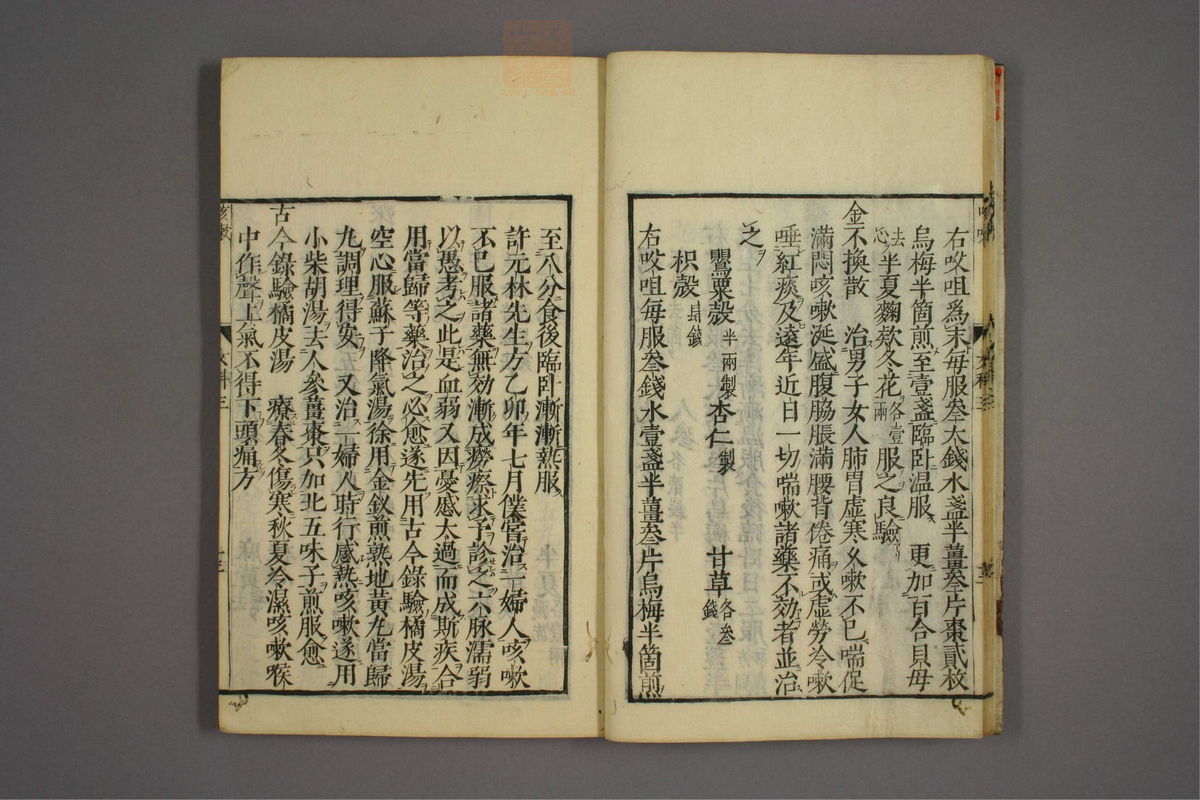 右㕮咀爲末每服叁大錢水盞半薑叁片棗貳枚
烏梅半箇煎至壹盞臨臥温服　更加百合貝母
去心半夏麴欵冬花各壹兩服之良驗
金不換散　治男子女人肺胃虚寒久嗽不已喘促
滿悶咳嗽涎盛腹脇脹滿腰背倦痛或虚勞冷嗽
唾紅痰及遠年近日一切喘嗽諸藥不効者並治
之
罌粟殼半兩製　杏仁製　甘草各叁錢
枳殼肆錢
右㕮咀每服叁錢水壹盞半薑叁片烏梅半箇煎
至八分食後臨臥漸漸熱服
許元林先生方乙卯年七月僕嘗治一婦人咳嗽
不已服諸藥無効漸成癆瘵求予診之六脉濡弱
以愚考之此是血弱又因憂慼太過而成斯疾合
用當歸等藥治之必愈遂先用古今錄驗橘皮湯
空心服蘇子降氣湯徐用金釵煎熟地黃丸當歸
丸調理得安　又治一婦人時行感熱咳嗽遂用
小柴胡湯去人參薑棗只加北五味子煎服愈
古今錄驗橘皮湯　療春冬傷寒秋夏冷濕咳嗽喉
中作聲上氣不得下頭痛方
咳嗽
文科三
十三